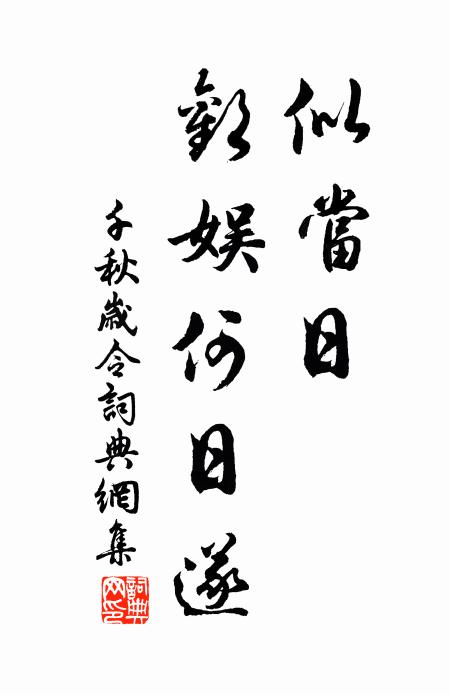 似當日
歡娛何日遂
千秋歲令詞典網集
詞典網印